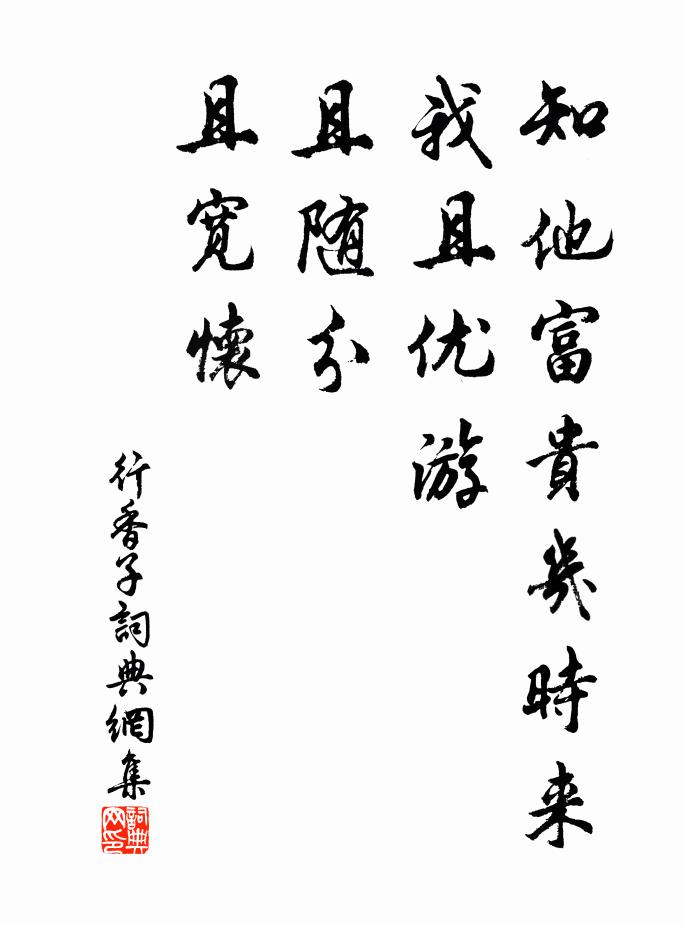 知他富貴幾時来
我且优游
且随分
且寬懷
行香子詞典網集
詞典
网印